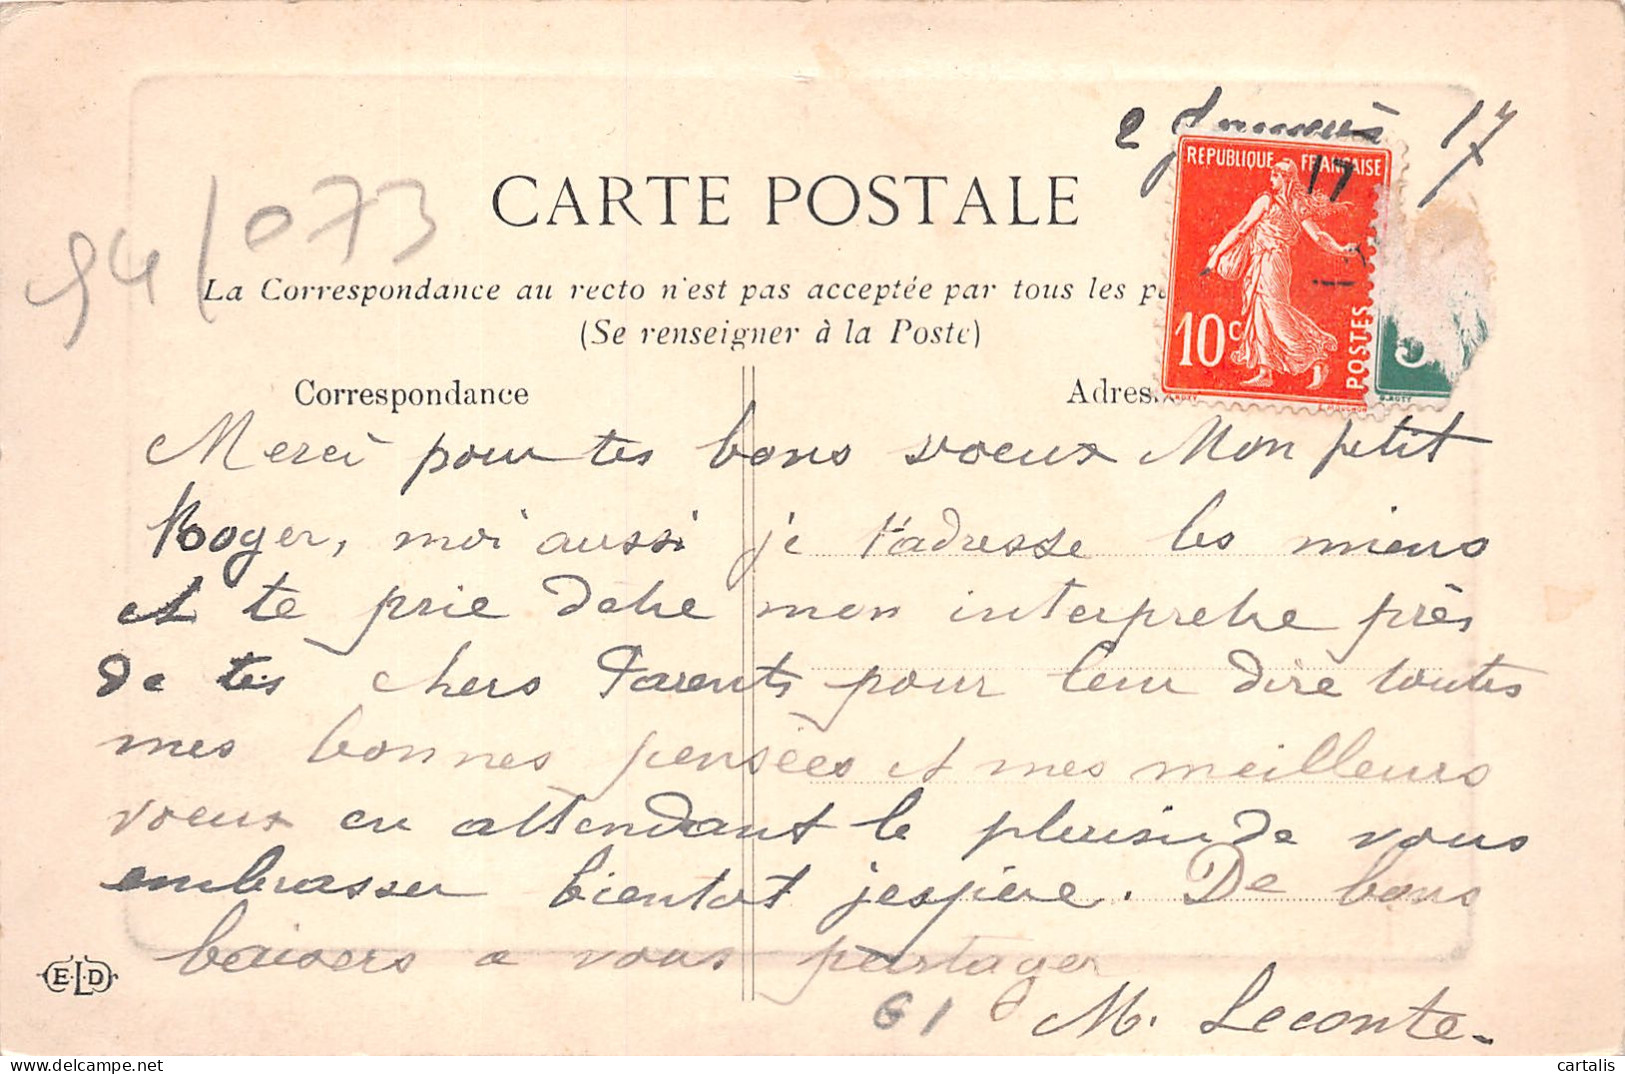 2 Janvier 17
REPUBLIQUE FRANÇAISE
17
10c
POSTES
5
CARTE POSTALE
94/073
La Correspondance au recto n'est pas acceptée par tous les
(Se renseigner à la Poste)
Correspondance
Adres
Merci pour tes bons voeux Mon petit
Roger, moi aussi je t'adresse les miens
et te prie d'etre mon interpretre près
de tes chers Parents pour leur dire toutes
mes bonnes pensées et mes meilleurs
voeux en attendant le plaisir de vous
embrasser bientot j'espère. De bons
baisers a vous partager
M. Leconte.
61
E.L.D
cartalis